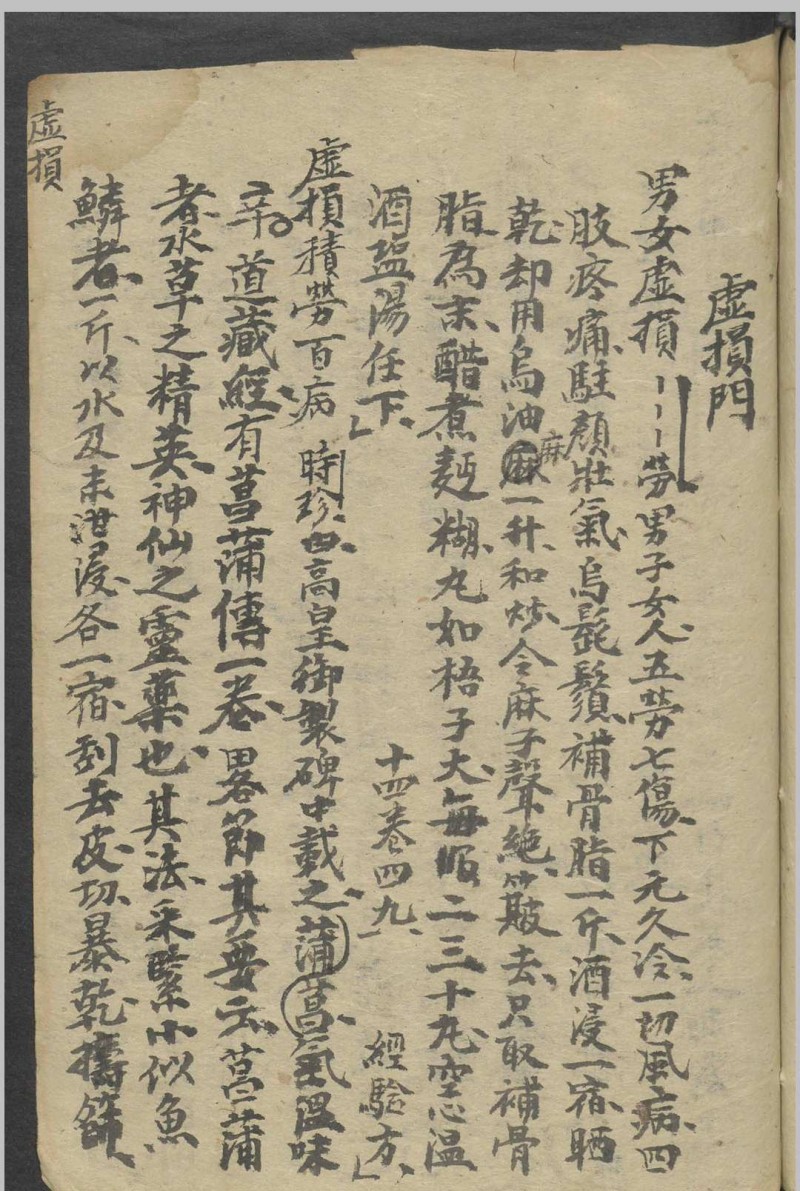 虛損門
男女虛損 丨丨丨勞男子女人五勞七傷下元久冷一切風病四
肢疼痛駐顏壯氣烏髭鬚補骨脂一斤酒浸一宿晒
乾却用烏油麻一升和炒令麻子聲絶簸去只取補骨
麻
脂為末醋煮麵糊丸如梧子大每服二三十丸空心温
酒塩湯任下 十四卷四九 經驗方
虛損積勞百病 時珍曰高皇御製碑中載之蒲菖氣温味
辛。道藏經有菖蒲傳一卷畧節其要云菖蒲
者水草之精英神仙之靈藥也其法采緊小似魚
鱗者一斤以水及米泔浸各一宿刮去皮切暴乾擣篩
虛損